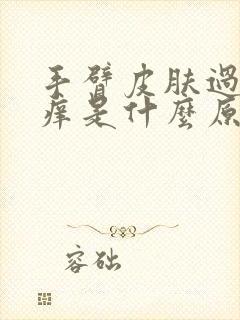 手臂皮肤過
痒是什麼原
容础